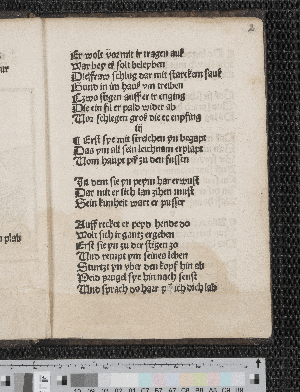 2
Er wolt vor mit er ragen auß
War bey ez solt beleyben
Die fraw schlug dar mit starckem sauß
Bund in im haus vm treiben
Czwo stigen auff er er enging
Die ein fil er pald wider ab
Vor schlegen groß die er enpfing
iij
¶ Erst sye mit streichen yn begapt
Das ym all sein leichnam erplapt
Vom haupt piß zu den fussen
In dem sie yn peym har erwust
Dar mit er sich lan zihen must
Sein kunheit wart er pussen
Auff recket er peyd hende do
Wolt sich ir gantz ergeben
Erst sie yn zu der stigen zo
Vnd raupt ym seines leben
Sturtzt yn vber den kopf hin ab
Vnd prugel sye hin noch senft
Vnd sprach do har ich dich lab
plab